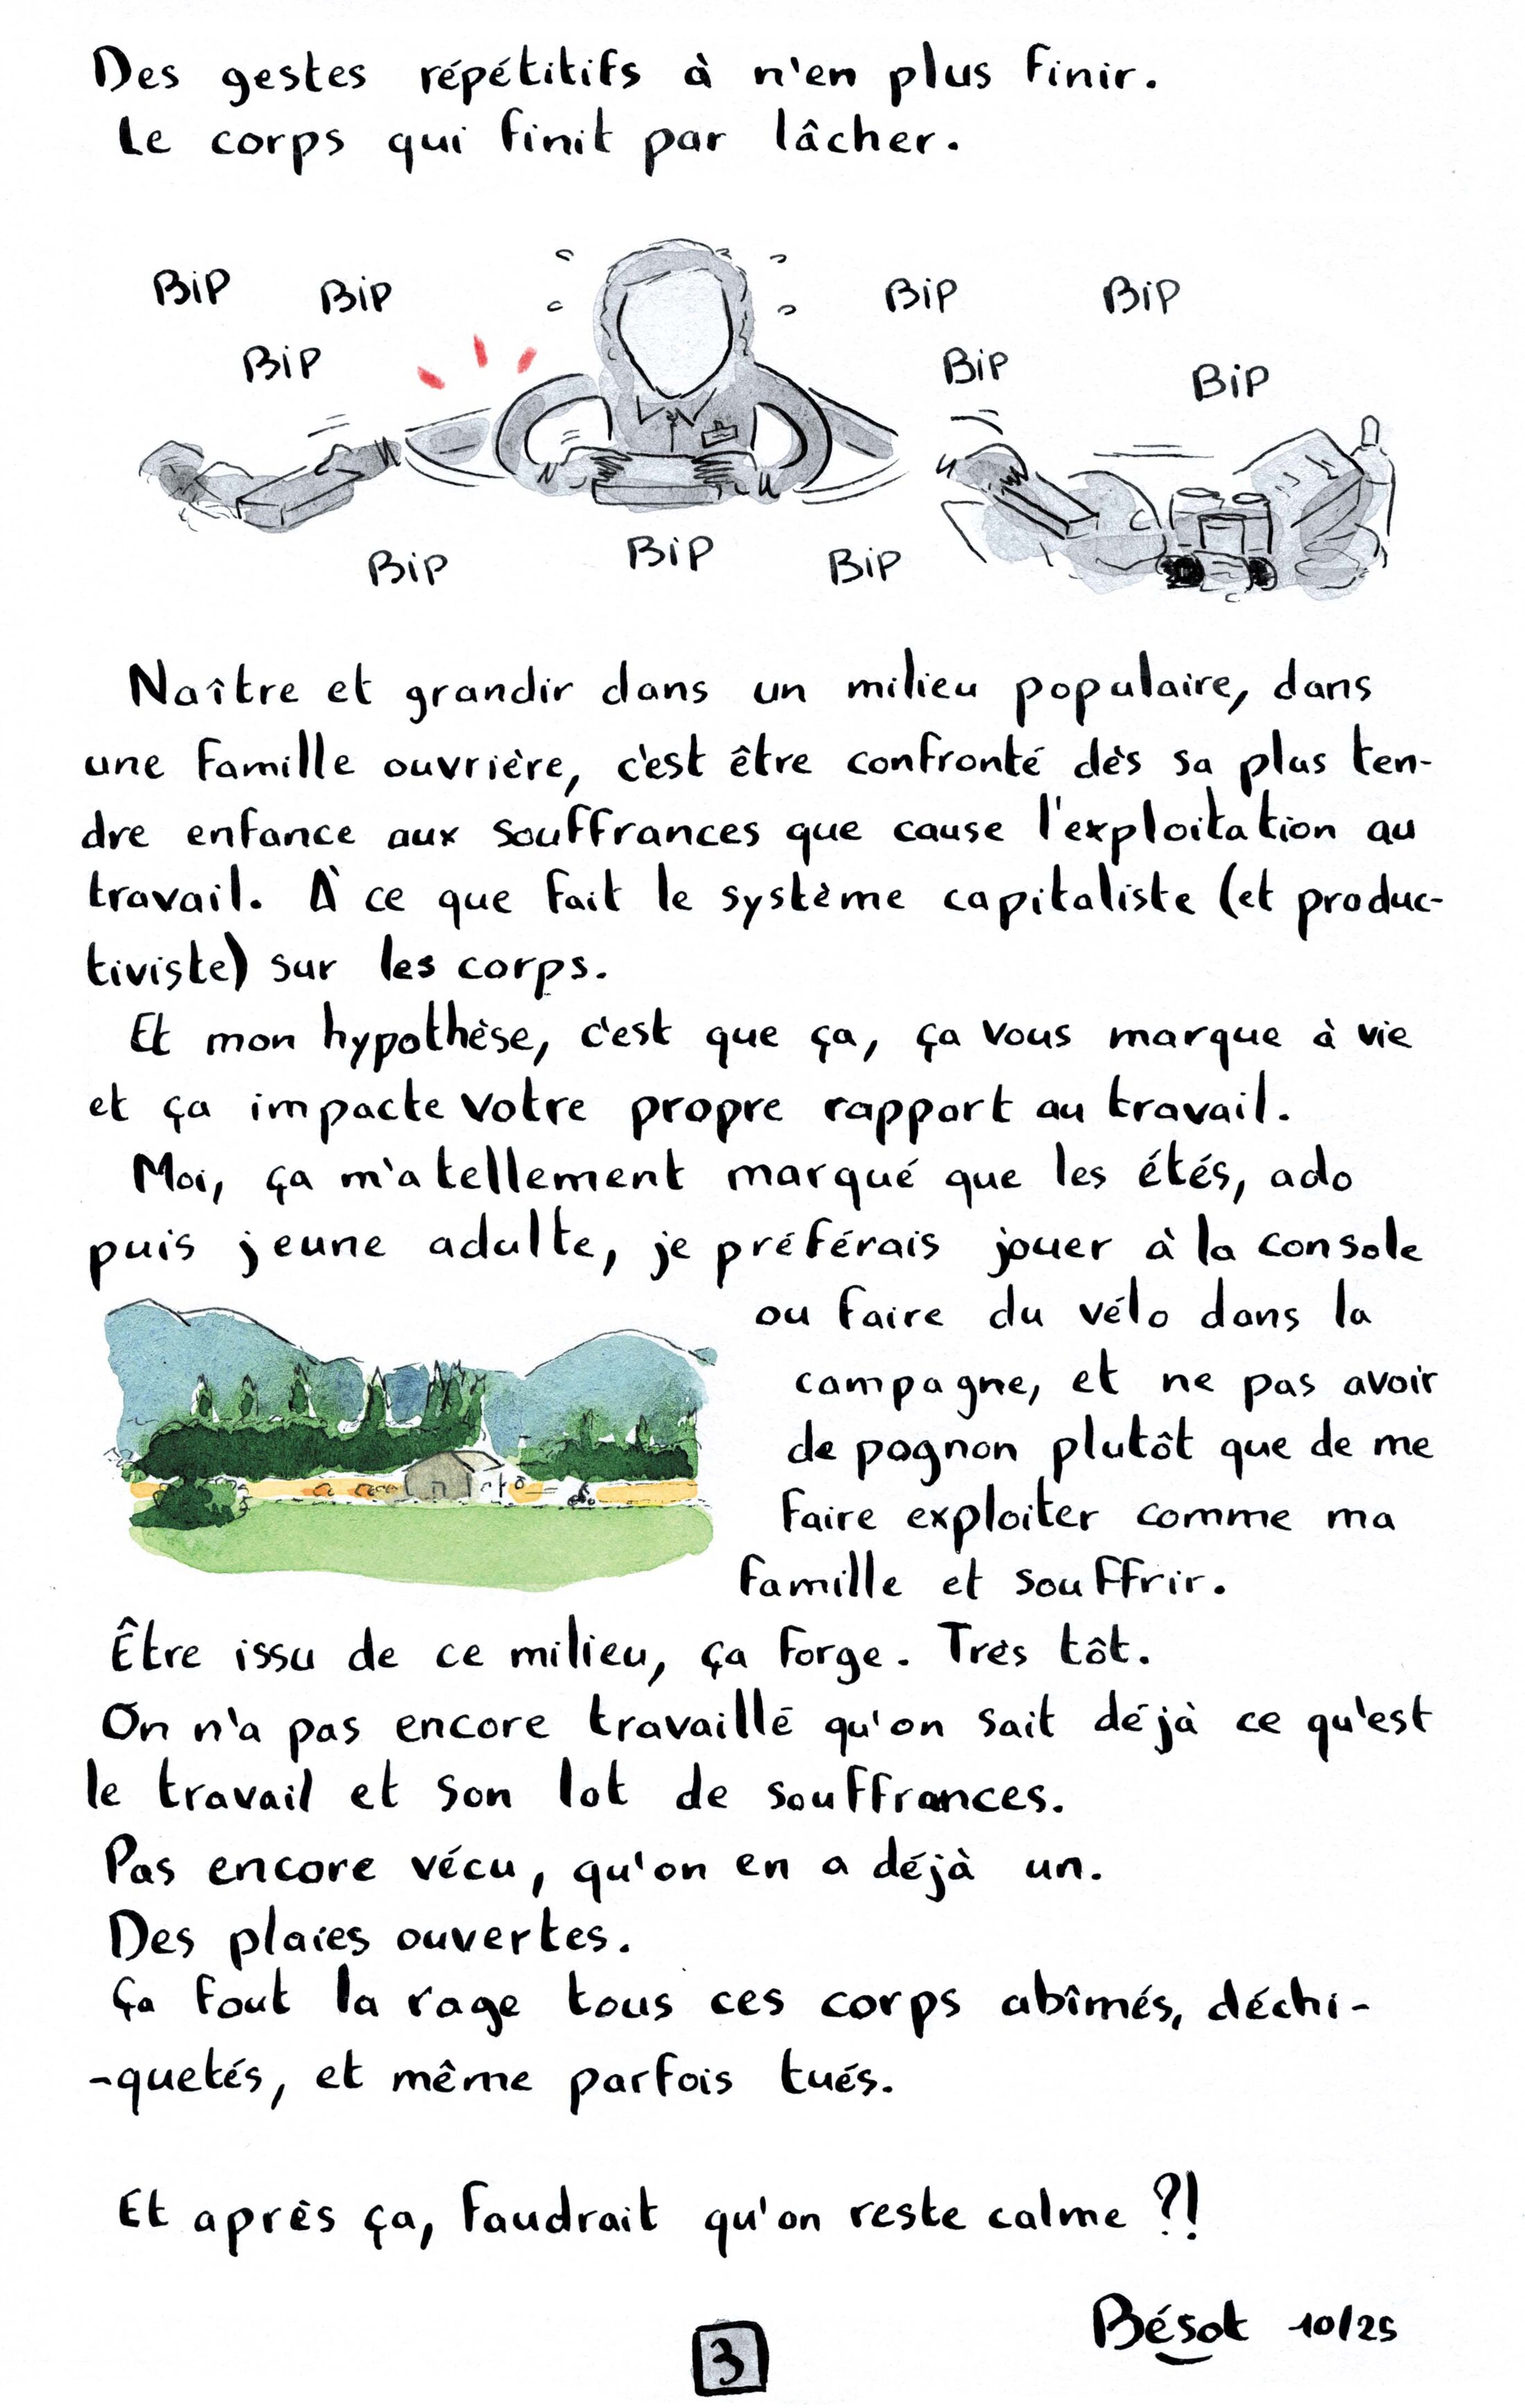 Des gestes répétitifs à n'en plus finir.
Le corps qui finit par lâcher.
BiP BiP BiP BiP
BiP BiP BiP
BiP BiP BiP
Naître et grandir dans un milieu populaire, dans
une famille ouvrière, c'est être confronté dès sa plus ten-
dre enfance aux souffrances que cause l'exploitation au
travail. À ce que fait le système capitaliste (et produc-
tiviste) sur les corps.
Et mon hypothèse, c'est que ça, ça vous marque à vie
et ça impacte votre propre rapport au travail.
Moi, ça m'a tellement marqué que les étés, ado
puis jeune adulte, je préférais jouer à la console
ou faire du vélo dans la
campagne, et ne pas avoir
de pognon plutôt que de me
faire exploiter comme ma
famille et souffrir.
Être issu de ce milieu, ça forge. Très tôt.
On n'a pas encore travaillé qu'on sait déjà ce qu'est
le travail et son lot de souffrances.
Pas encore vécu, qu'on en a déjà un.
Des plaies ouvertes.
Ça fout la rage tous ces corps abîmés, déchi-
-quetés, et même parfois tués.
Et après ça, faudrait qu'on reste calme ?!
Bésot 10/25
3